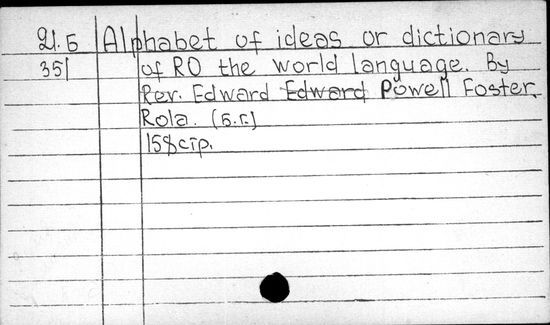 Ql. Б Alphabet of ideas or dictionary
351 of RO the world language. By
Rev. Edward Edward Powell Foster.
Rola. (б.г.)
158 стр.